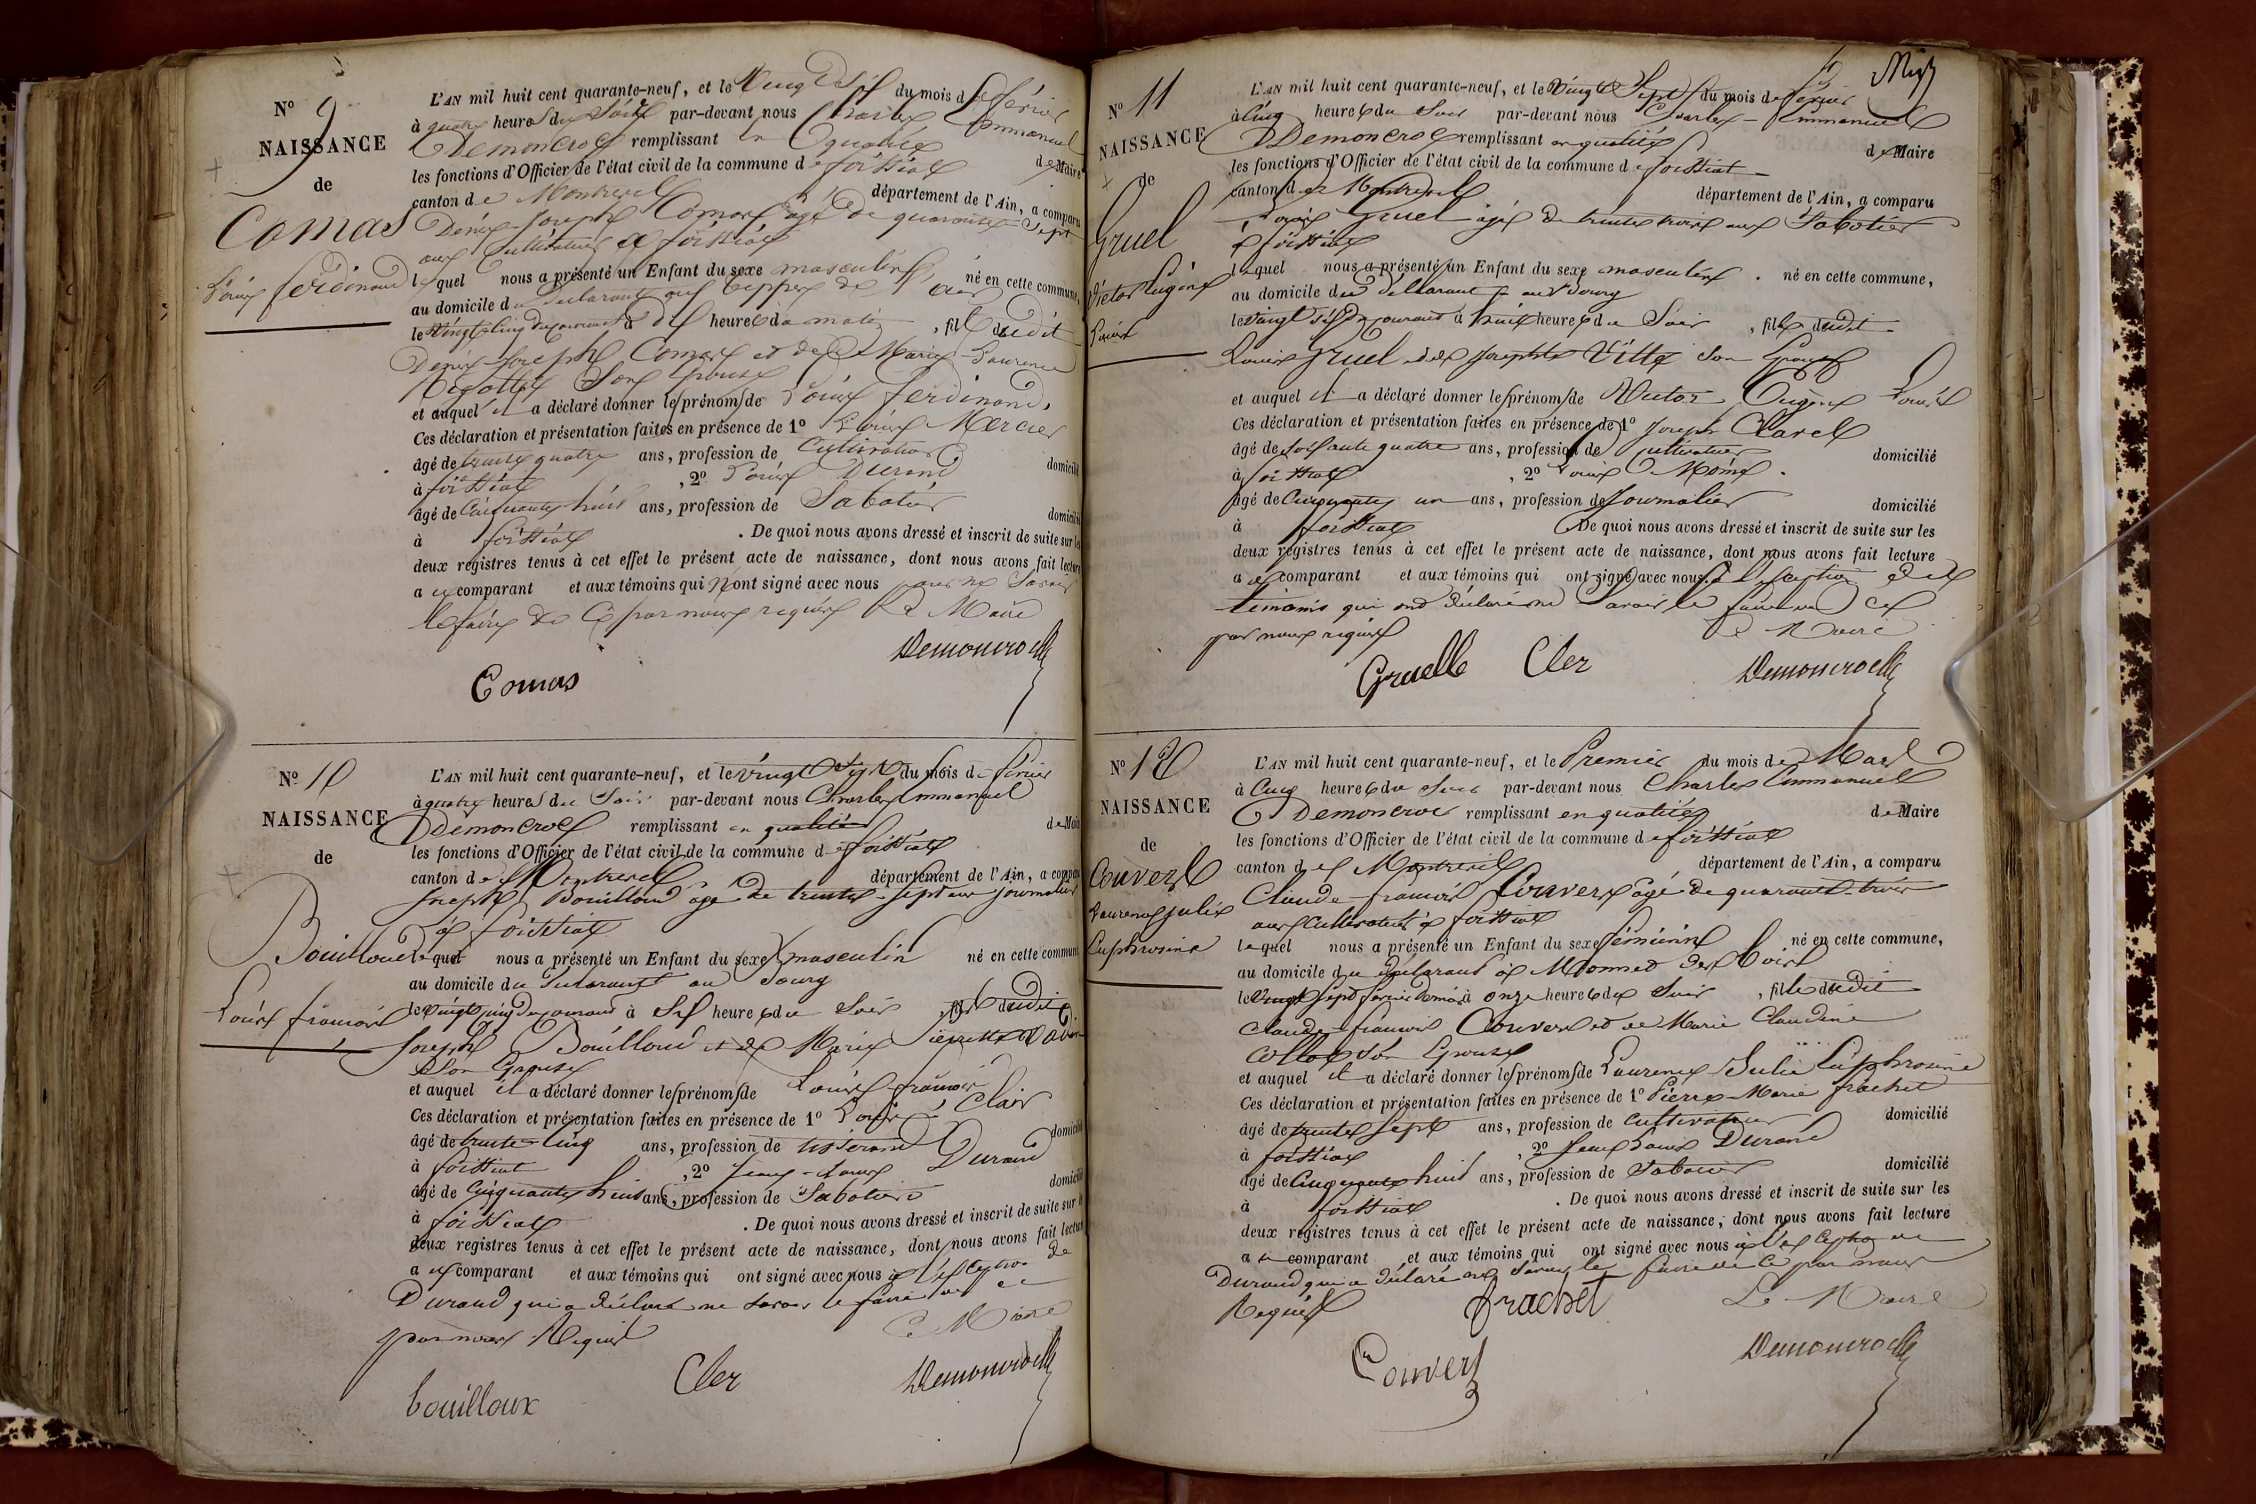 N° 9
NAISSANCE
de
Comas
Louis ferdinand
L'AN mil huit cent quarante-neuf, et le Vingt Six du mois de février
à quatre heures du Soir par-devant nous Charles Emmanuel
Demoncroc remplissant en qualité de Maire
les fonctions d'Officier de l'état civil de la commune de foissiat
canton de Montrevel département de l'Ain, a comparu
Denis Joseph Comas âgé de quarante Sept
ans Cultivateur à foissiat
lequel nous a présenté un Enfant du sexe masculin, né en cette commune,
au domicile du déclarant
le Vingt cinq du courant à dix heures du matin, fils dudit
Denis Joseph Comas et de Marie Laurence
Son épouse
et auquel il a déclaré donner les prénoms de Louis ferdinand.
Ces déclaration et présentation faites en présence de 1° Louis Mercier
âgé de trente quatre ans, profession de Cultivateur domicilié
à foissiat, 2° Louis Durand
âgé de Cinquante huit ans, profession de Sabotier domicilié
à foissiat. De quoi nous avons dressé et inscrit de suite sur les
deux registres tenus à cet effet le présent acte de naissance, dont nous avons fait lecture
au comparant et aux témoins qui n'ont signé avec nous pour ne Savoir
le faire de ce par nous requis Le Maire
Demoncroc
Comas
N° 10
NAISSANCE
de
Bouilloud
Louis françois
L'AN mil huit cent quarante-neuf, et le vingt Six du mois de février
à quatre heures du Soir par-devant nous Charles Emmanuel
Demoncroc remplissant en qualité de Maire
les fonctions d'Officier de l'état civil de la commune de foissiat
canton de Montrevel département de l'Ain, a comparu
Joseph Bouilloud âgé de trente Sept ans journalier
à foissiat
lequel nous a présenté un Enfant du sexe masculin né en cette commune
au domicile du déclarant au bourg
le vingt cinq du courant à Six heures du Soir, fils dudit
Joseph Bouilloud et de Marie Pierrette
Son Epouse
et auquel il a déclaré donner les prénoms de Louis françois
Ces déclaration et présentation faites en présence de 1° Louis Clair
âgé de trente cinq ans, profession de tisserand domicilié
à foissiat, 2° Jean Louis Durand
âgé de Cinquante huit ans, profession de Sabotier domicilié
à foissiat. De quoi nous avons dressé et inscrit de suite sur les
deux registres tenus à cet effet le présent acte de naissance, dont nous avons fait lecture
au comparant et aux témoins qui ont signé avec nous à l'exception de
Durand qui a déclaré ne savoir le faire de ce
par nous Requis Le Maire
Bouilloux Cler Demoncroc
N° 11
NAISSANCE
de
Gruel
Victor Eugène
Louis
L'AN mil huit cent quarante-neuf, et le Vingt Sept du mois de février
à Cinq heures du Soir par-devant nous Charles Emmanuel
Demoncroc remplissant en qualité de Maire
les fonctions d'Officier de l'état civil de la commune de foissiat
canton de Montrevel département de l'Ain, a comparu
Louis Gruel âgé de trente trois ans Sabotier
à foissiat
lequel nous a présenté un Enfant du sexe masculin. né en cette commune,
au domicile du déclarant au bourg
le vingt Six du courant à huit heures du Soir, fils dudit
Louis Gruel et de Josephte Vitte Son Epouse
et auquel il a déclaré donner les prénoms de Victor Eugène Louis
Ces déclaration et présentation faites en présence de 1° Joseph Clarel
âgé de soixante quatre ans, profession de Cultivateur domicilié
à foissiat, 2° Louis
âgé de Cinquante un ans, profession de Journalier domicilié
à foissiat De quoi nous avons dressé et inscrit de suite sur les
deux registres tenus à cet effet le présent acte de naissance, dont nous avons fait lecture
au comparant et aux témoins qui ont signé avec nous à l'exception des
témoins qui ont déclaré ne Savoir le faire de ce
par nous requis Le Maire
Gruelle Cler Demoncroc
N° 12
NAISSANCE
de
Convert
Laurence julie
Euphrosine
L'AN mil huit cent quarante-neuf, et le Premier du mois de Mars
à Cinq heures du Soir par-devant nous Charles Emmanuel
Demoncroc remplissant en qualité de Maire
les fonctions d'Officier de l'état civil de la commune de foissiat
canton de Montrevel département de l'Ain, a comparu
Claude françois Convert âgé de quarante trois
ans Cultivateur à foissiat
lequel nous a présenté un Enfant du sexe féminin né en cette commune,
au domicile du déclarant
le vingt sept février dernier à onze heures du Soir, fille dudit
Claude françois Convert et de Marie Claudine
Collas son Epouse
et auquel il a déclaré donner les prénoms de Laurence Julie Euphrosine
Ces déclaration et présentation faites en présence de 1° Pierre Marie frachet
âgé de trente sept ans, profession de Cultivateur domicilié
à foissiat, 2° Jean Louis Durand
âgé de Cinquante huit ans, profession de Sabotier domicilié
à foissiat. De quoi nous avons dressé et inscrit de suite sur les
deux registres tenus à cet effet le présent acte de naissance, dont nous avons fait lecture
au comparant et aux témoins qui ont signé avec nous à l'exception de
Durand qui a déclaré ne savoir le faire de ce par nous
Requis frachet Le Maire
Convert Demoncroc